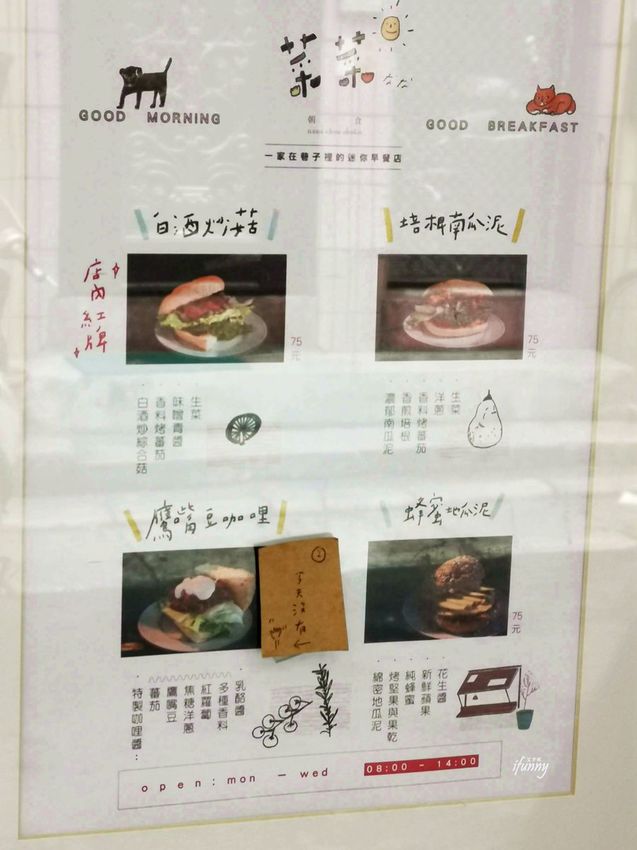 菜菜
なな
GOOD MORNING
朝食
GOOD BREAKFAST
一家在巷子裡的迷你早餐店
白酒炒菇
培根南瓜泥
店內紅牌
75元
75元
生菜
味噌青醬
香料烤蕃茄
白酒炒綜合菇
生菜
洋蔥
香料烤蕃茄
香煎培根
濃郁南瓜泥
鷹嘴豆咖哩
蜂蜜地瓜泥
今天沒有
75元
乳酪醬
多種香料
紅蘿蔔
焦糖洋蔥
鷹嘴豆
蕃茄
特製咖哩醬：
花生醬
新鮮蘋果
純蜂蜜
烤堅果與果乾
綿密地瓜泥
open: mon — wed
08:00 - 14:00
ifunny